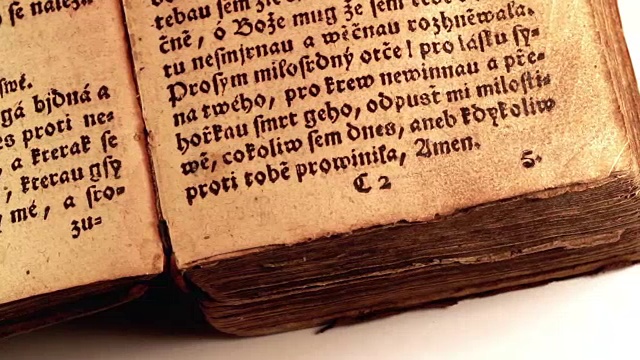 se náleži
swé.
gá bjdná a
es proti ne=
, a kterak se
, kterau gsy
mé, a sro=
zu=
tebau sem
čně, ó Bože mug že sem
tu nesmjrnau a wěčnau rozhněwala.
Prosým milosrdný otče! pro lásku sy=
na twého, pro krew newinnau a pře=
hořkau smrt geho, odpusť mi milosti=
wě, cokoliw sem dnes, aneb kdykoliw
proti tobě prowinila, Amen.
C 2
5.